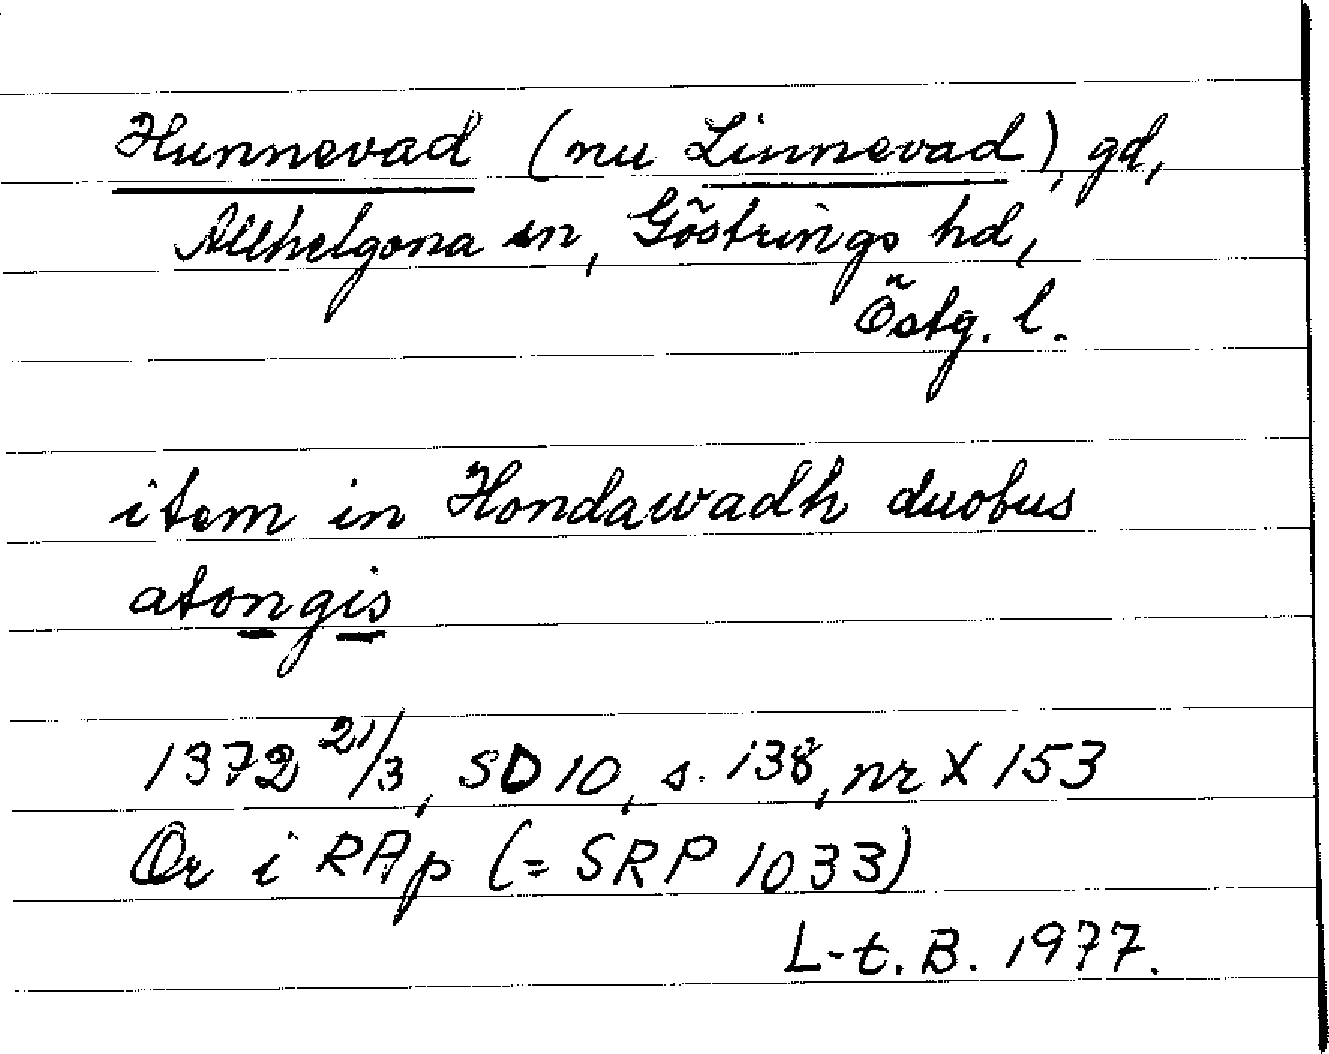 Hunnevad (nu Linnevad), gd,
Allhelgona sn, Göstrings hd,
Östg. l.
item in Hondawadh duobus
atongis
1372 21/3, SD 10, s. 138, nr X 153
Or i RAp (= SRP 1033)
L-t. B. 1977.